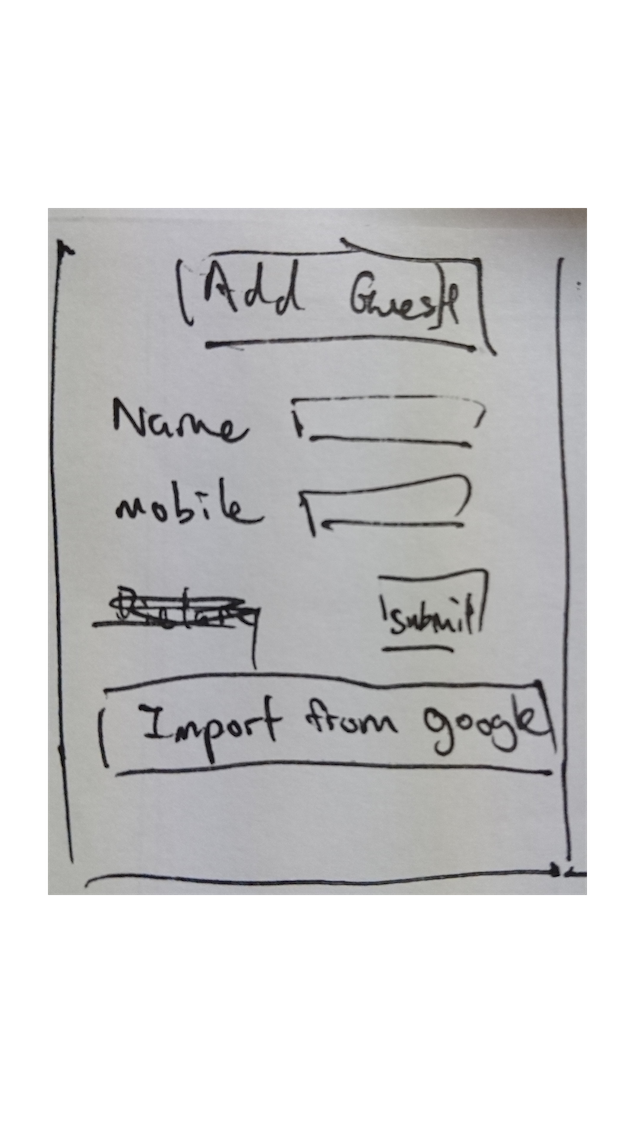 Add Guest
Name
mobile
submit
Import from google